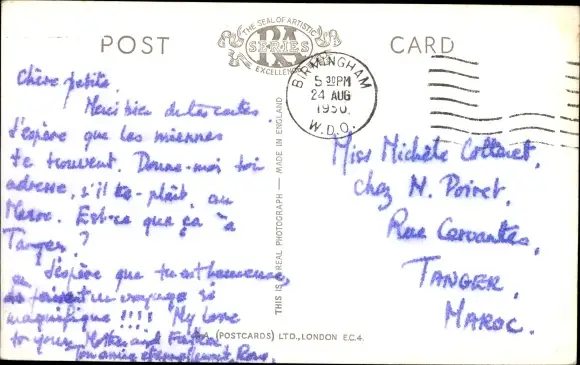 POST CARD
THE SEAL OF ARTISTIC
RA
SERIES
EXCELLENCE
BIRMINGHAM
5 30 PM
24 AUG
1950
W.D.O.
Chère petite,
Merci bien de tes cartes.
J'espère que les miennes
te trouvent. Donne-moi ton
adresse, s'il te-plaît, au
Maroc. Est-ce que ça a
Tanger?
J'espère que tu est heureuse,
en faisant un voyage si
magnifique !!!! My love
to your Mother and Father
Ton amie éternellement,
THIS IS A REAL PHOTOGRAPH — MADE IN ENGLAND
(POSTCARDS) LTD., LONDON E.C.4.
Miss Michèle Cottenet,
chez M. Poiret,
Rue Cervantes,
TANGER,
MAROC.